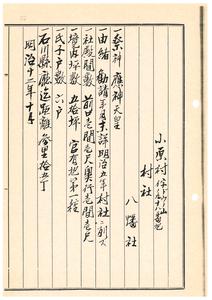 小原村
村社
八幡社
一祭神 應神天皇
一由緒 勧請年月未詳明治五年村社ニ列ス
一社殿間数 前口壱間壱尺奥行壱間壱尺
一境内坪数 五拾坪 官有地第一種
一氏子戸数 六戸
一石川県庁迄距離 参里拾五丁
明治十二年十月